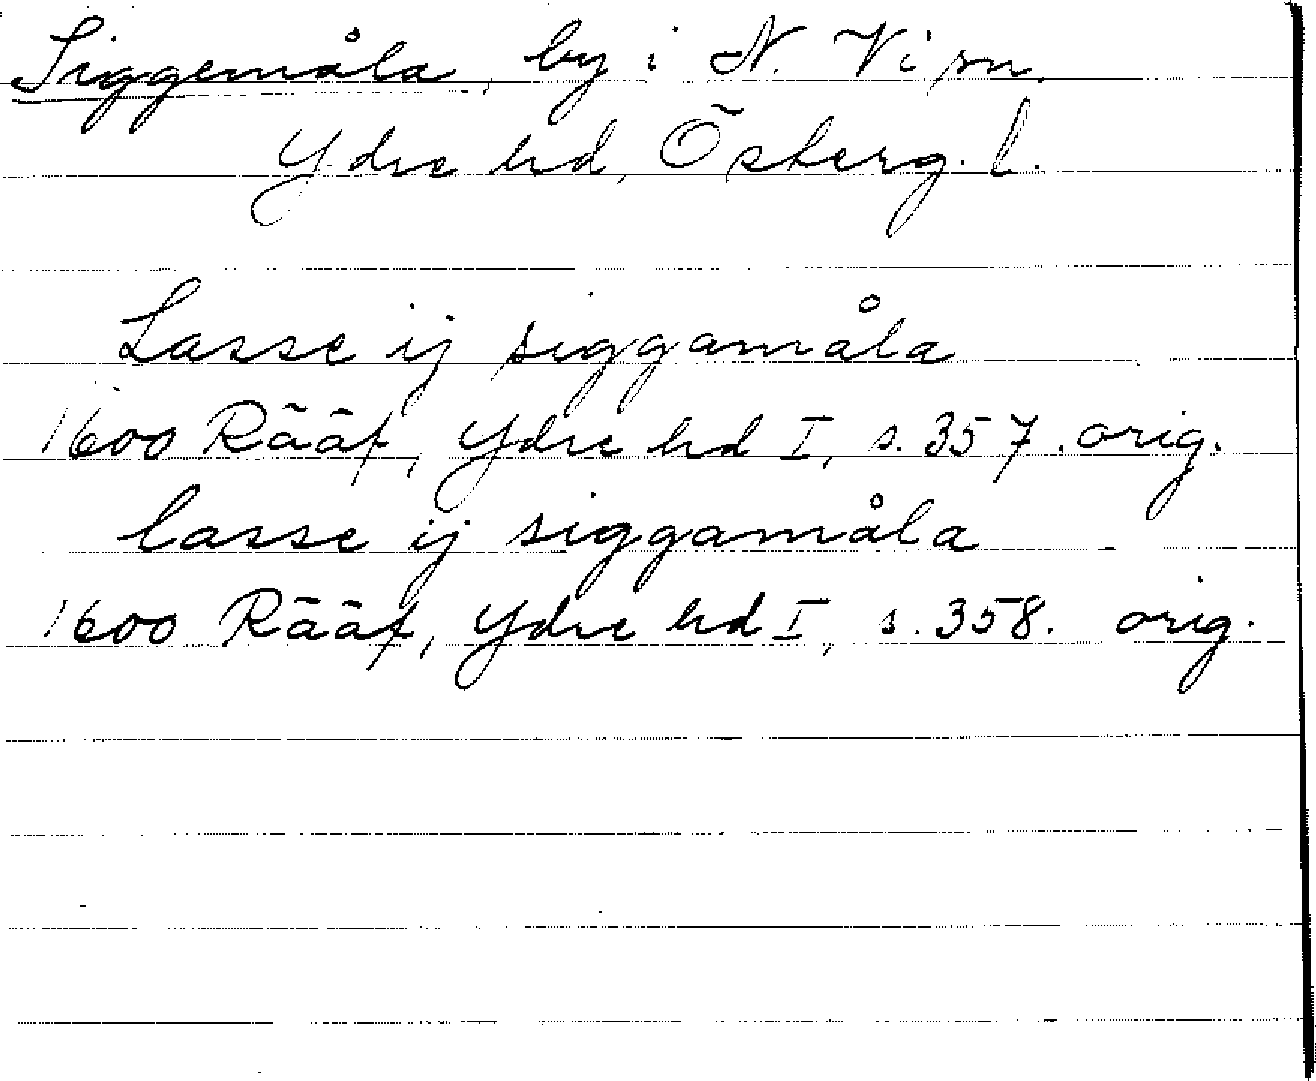 Siggemåla, by i N. Vi sn.
Ydre hd, Österg. l.
Lasse ij siggamåla
1600 Rääf, Ydre hd I, s. 357. orig.
lasse ij siggamåla
1600 Rääf, Ydre hd I, s. 358. orig.